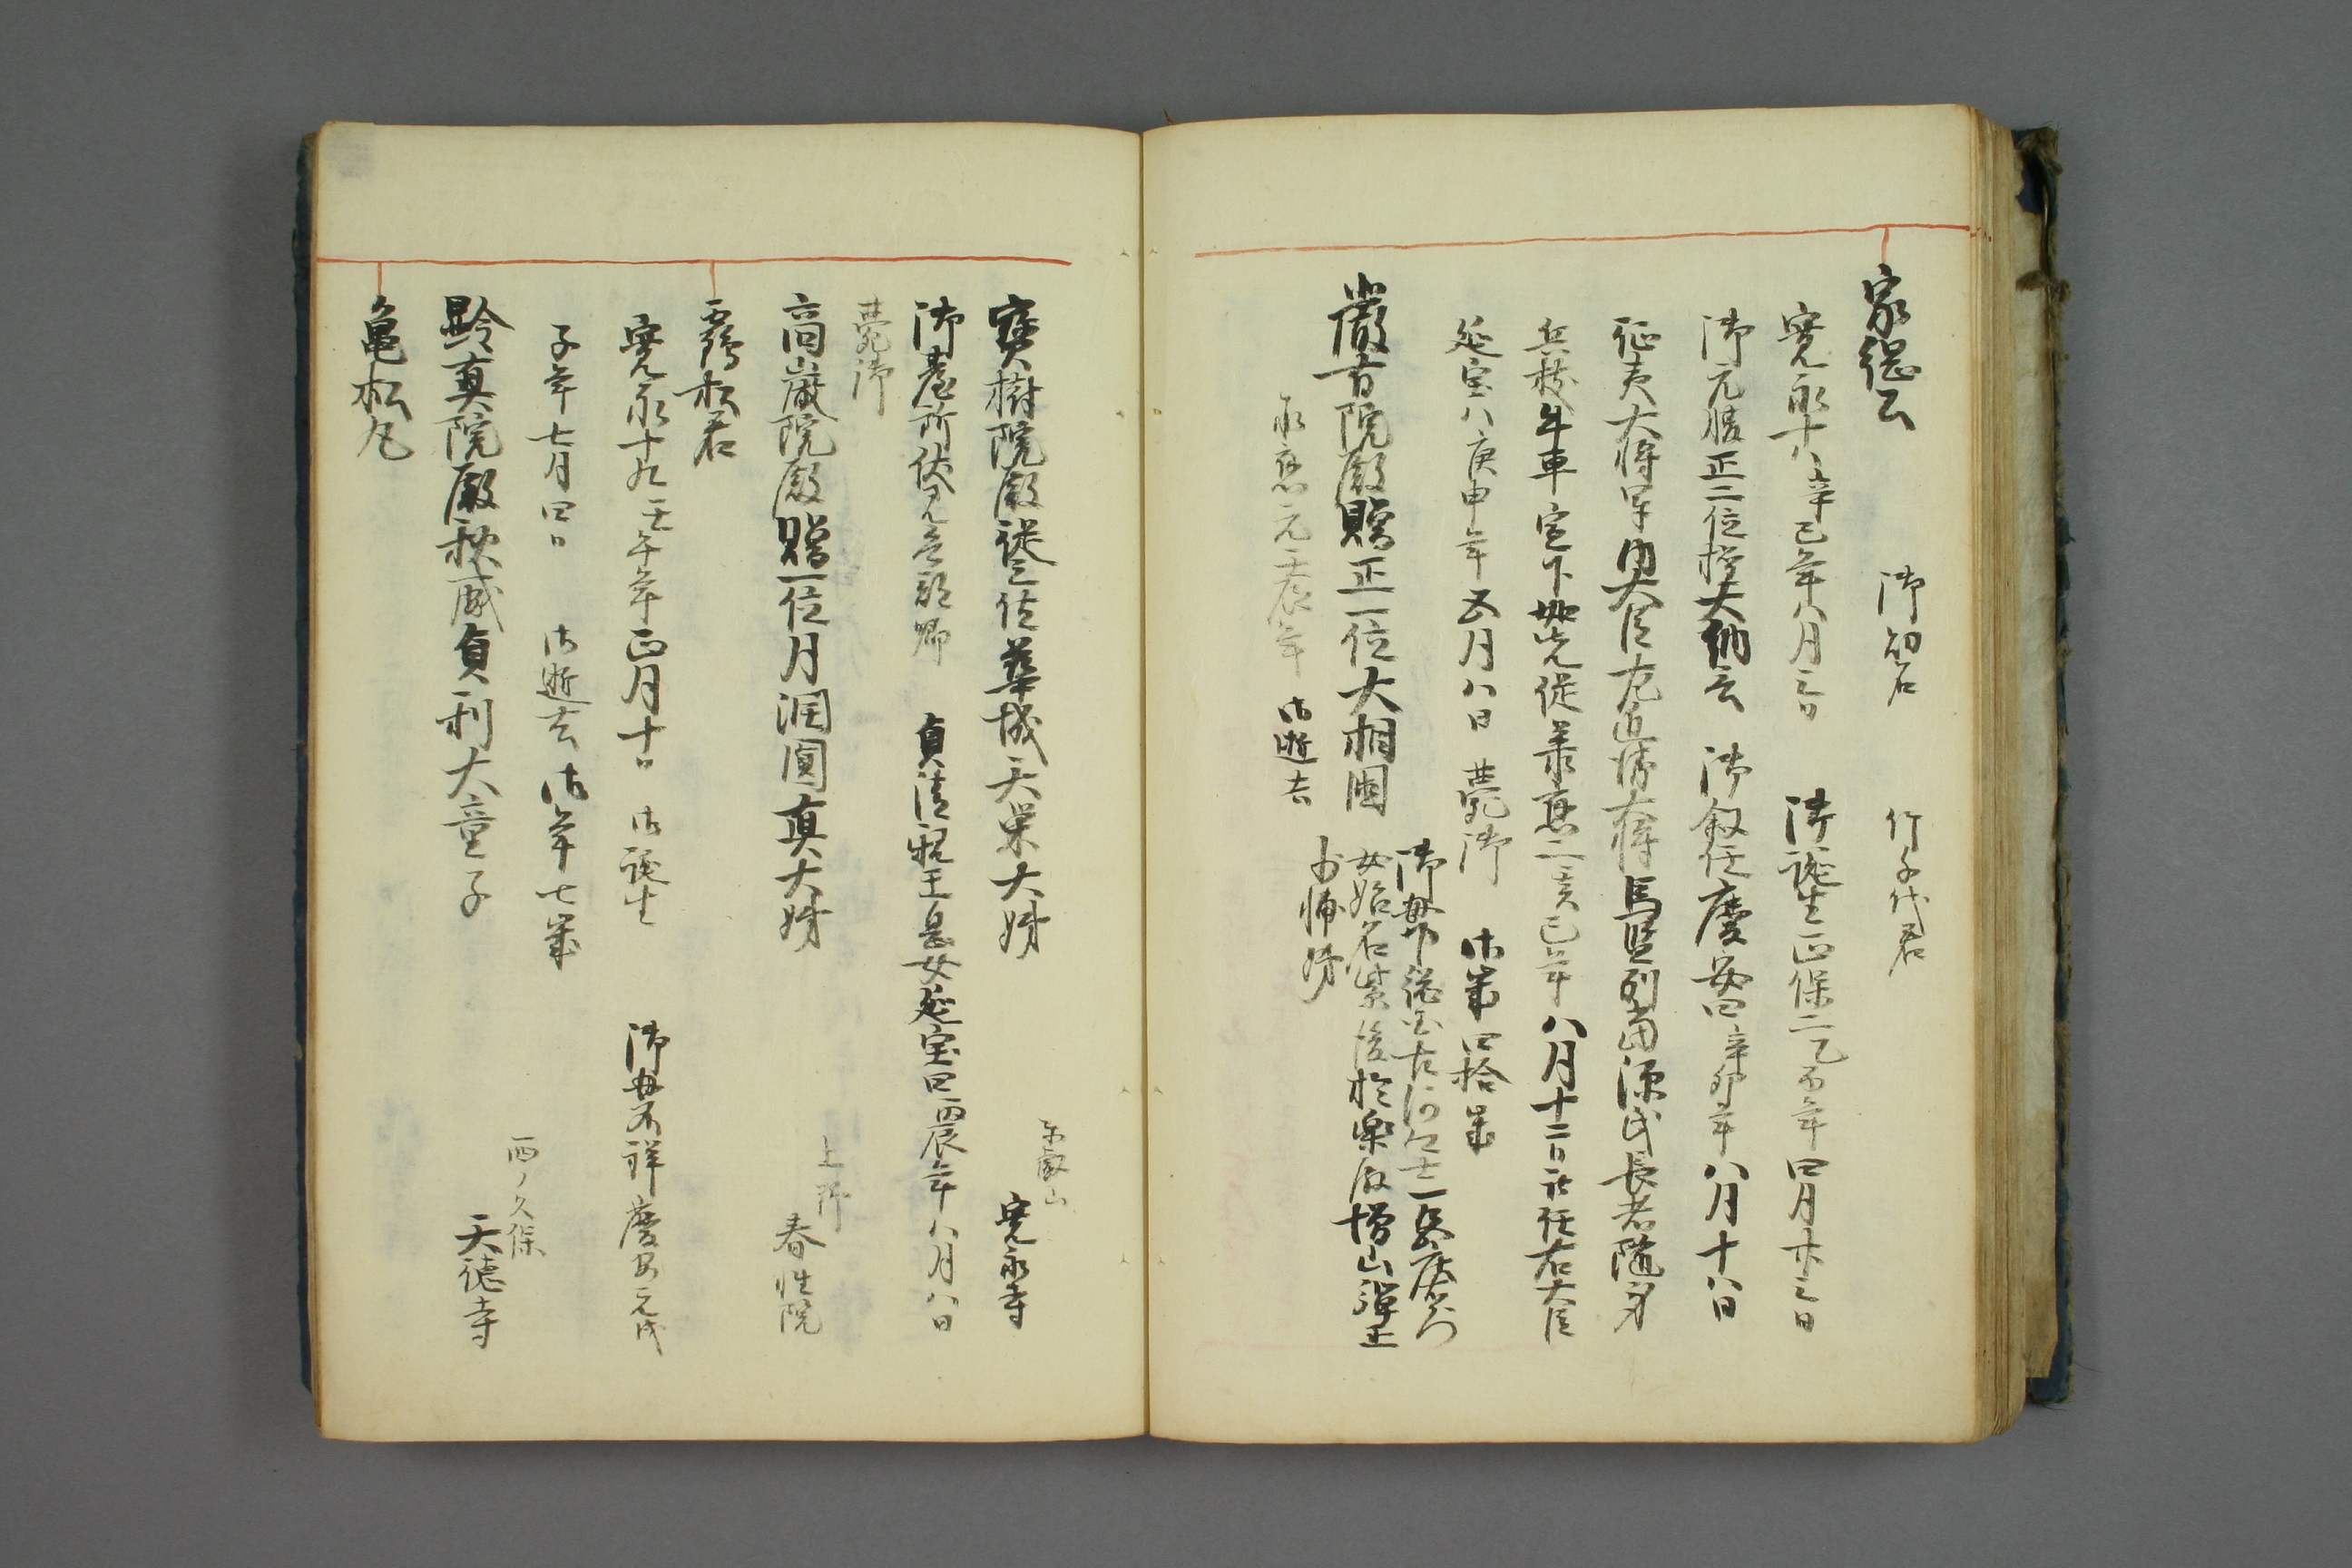 家綱公　御幼名　竹千代君
寛永十八辛巳年八月三日　御誕生正保二乙酉年四月廿三日
御元服正二位権大納言　御叙任慶安四辛卯年八月十八日
征夷大将軍内大臣左近衛大将馬監列当源氏長者随身
兵杖牛車宣下如先従承應二癸巳年八月十二日転任右大臣
延宝八庚申年五月八日　薨御　御歳四拾歳
嚴有院殿贈正一位大相國
御母下総国古河
女始名紫後於楽改増山弾正
少輔姉
承應元壬辰年　御逝去
東叡山
寳樹院殿従二位華城天栄大姉　寛永寺
御臺所伏見兵部卿　貞清親王息女延宝四丙辰年八月八日
薨御
上野
高嚴院殿贈一位月澗圓真大姉　春性院
霧松君
寛永十九壬午年正月十日　御誕生　御母不詳慶安元戊
子年七月四日　御逝去御年七歳
西ノ久保
黔真院殿秋威貞利大童子　天徳寺
亀松丸